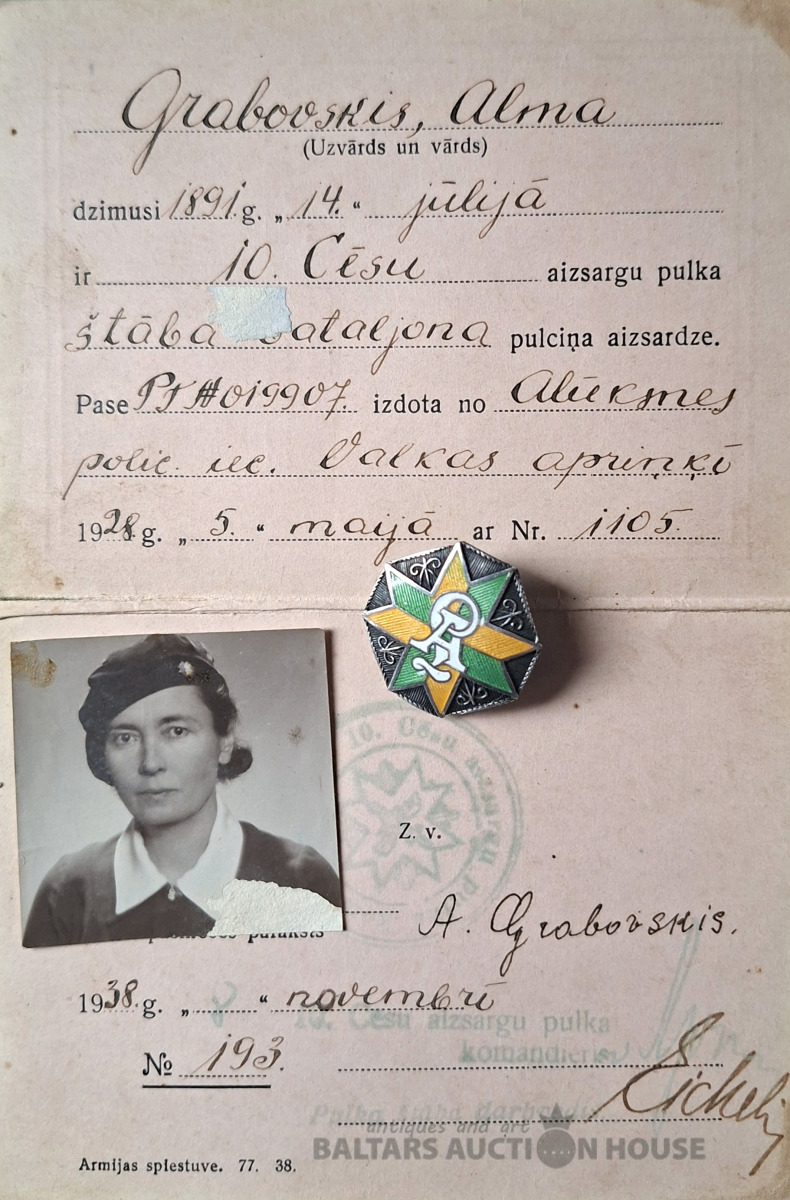 Grabovskis, Alma
(Uzvārds un vārds)
dzimusi 1891. g. „ 14. “ jūlijā
ir 10. Cēsu aizsargu pulka
štāba pulciņa aizsardze.
Pase izdota no Alūksnes
polic. iec. Valkas apriņķī
1928. g. „ 5. “ maijā ar Nr. 1105.
10. Cēsu aizsargu
Z. v.
paraksts
A. Grabovskis.
1938. g. „ 8 “ novembrī
10. Cēsu aizsargu pulka
komandieris
№ 193.
Pulka štāba
antiques and art
BALTARS AUCTION HOUSE
Armijas spiestuve. 77. 38.